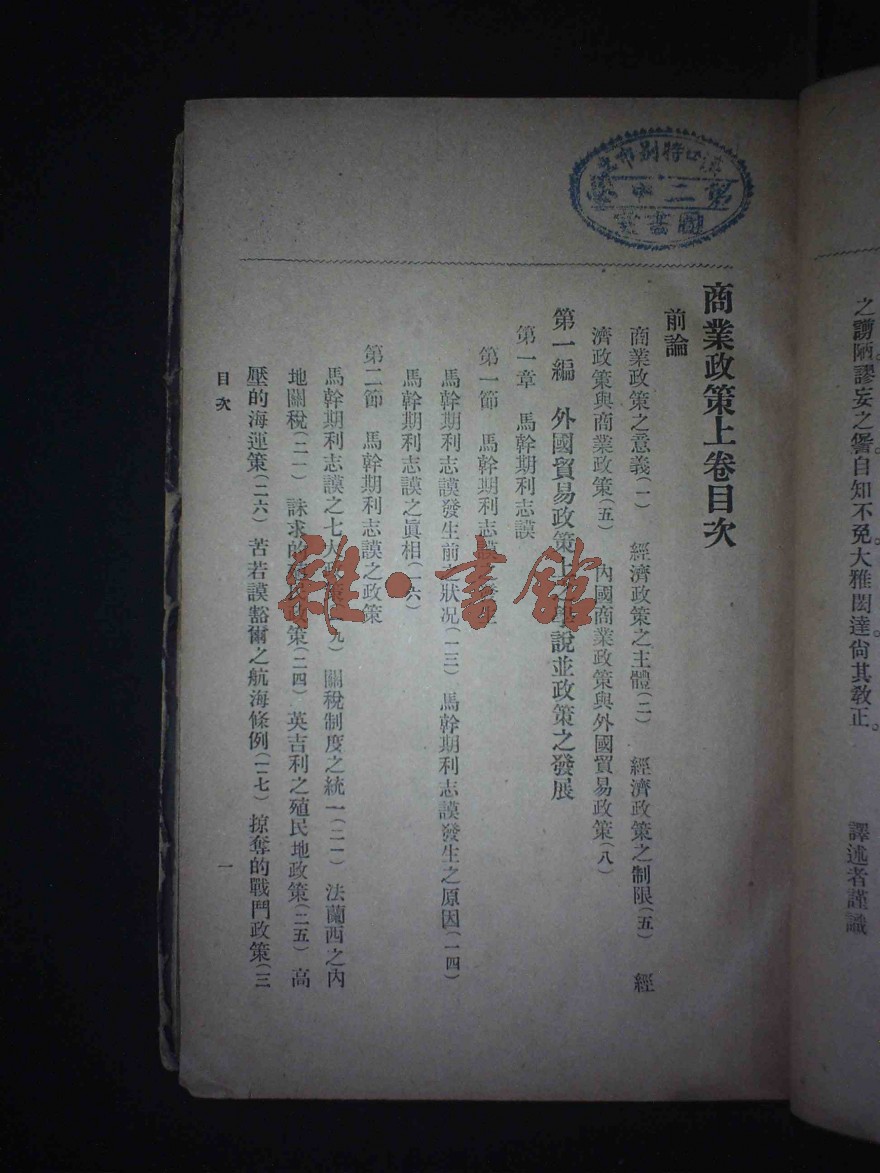 之謭陋謬妄之咎自知不免大雅閎達尙其敎正。
譯述者謹識
商業政策上卷目次
前論
商業政策之意義(一) 經濟政策之主體(二) 經濟政策之制限(五) 經
濟政策與商業政策(五) 內國商業政策與外國貿易政策(八)
第一編 外國貿易政策上之學說並政策之發展
第一章 馬幹期利志謨
第一節 馬幹期利志謨 發生
馬幹期利志謨發生前之狀況(一三) 馬幹期利志謨發生之原因(一四)
馬幹期利志謨之眞相(一六)
第二節 馬幹期利志謨之政策
馬幹期利志謨之七大政策(一九) 關稅制度之統一(二一) 法蘭西之內
地關稅(二一) 誅求的 民政策(二四) 英吉利之殖民地政策(二五) 高
壓的海運策(二六) 苦若謨豁爾之航海條例(二七) 掠奪的戰鬥政策(三
目次
一
第二中
圖書
雜·書館